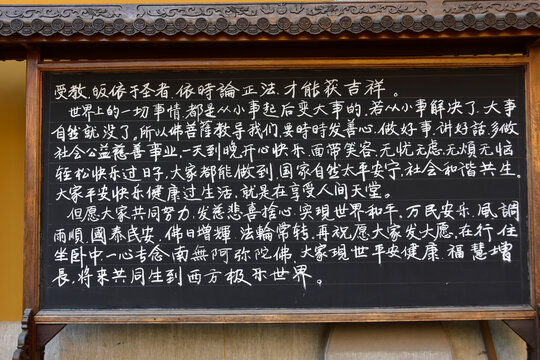 受教,皈依于圣者,依時論正法,才能获吉祥。
世界上的一切事情,都是从小事起后变大事的,若从小事解决了,大事
自然就没了。所以佛菩薩教导我们,要時时发善心,做好事,讲好話,多做
社会公益慈善事业,一天到晚开心快乐,面带笑容,无忧无虑无煩无恼
轻松快乐过日子,大家都能做到,国家自然太平安宁,社会和谐共生。
大家平安快乐健康过生活,就是在享受人间天堂。
但愿大家共同努力,发慈悲喜捨心,实現世界和平,万民安乐,風調
雨順,國泰民安,佛日增輝,法輪常转,再祝愿大家发大愿,在行住
坐卧中一心专念,南無阿弥陀佛,大家現世平安健康,福慧增
長,将来共同生到西方极乐世界。